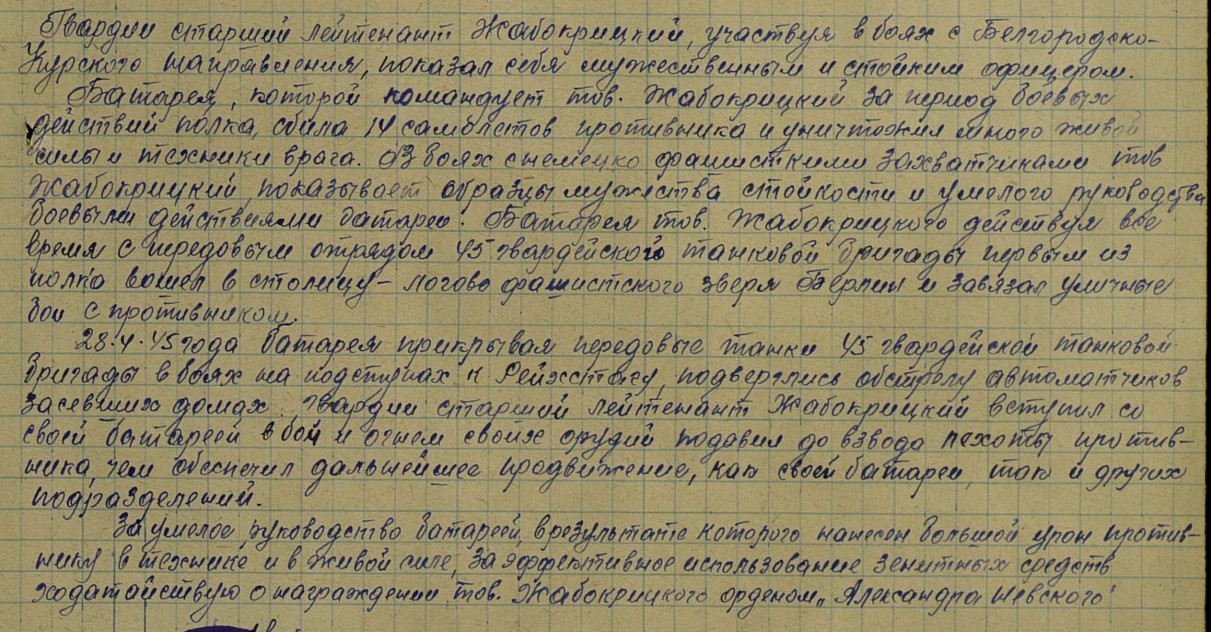 Гвардии старший лейтенант Жабокрицкий, участвуя в боях с Белгородско-
Курского направления, показал себя мужественным и стойким офицером.
Батарея, которой командует тов. Жабокрицкий за период боевых
действий полка, сбила 14 самолетов противника и уничтожил много живой
силы и техники врага. В боях с немецко фашисткими захватчиками тов
Жабокрицкий показывает образцы мужества стойкости и умелого руководства
боевыми действиями батареи. Батарея тов. Жабокрицкого действуя все
время с передовым отрядом 45 гвардейского танковой бригады первым из
полка вошел в столицу - логово фашистского зверя Берлин и завязал уличные
бои с противником.
28.4.45 года батарея прикрывая передовые танки 45 гвардейской танковой
бригады в боях на подступах к Рейхстагу, подверглись обстрелу автоматчиков
засевших домах. Гвардии старший лейтенант Жабокрицкий вступил со
своей батареей в бой и огнем своих орудий подавил до взвода пехоты против-
ника, чем обеспечил дальнейшее продвижение, как своей батареи, так и других
подразделений.
За умелое руководство батареей, в результате которого нанесен большой урон против-
нику в технике и в живой силе, за эффективное использование зенитных средств
ходатайствую о награждении тов. Жабокрицкого орденом „Александра Невского"